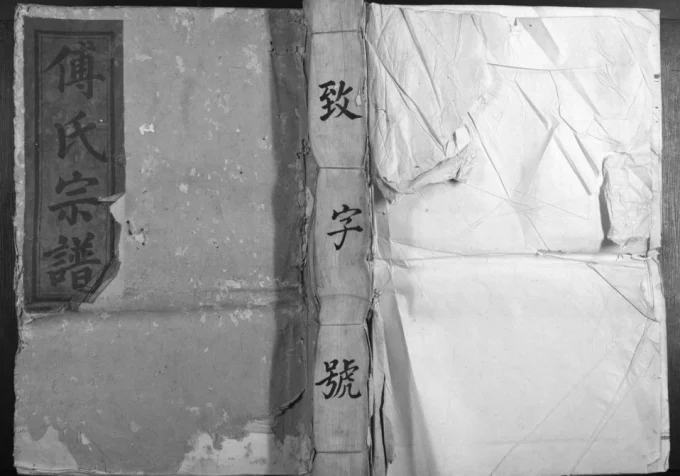 傅氏宗譜
致字號